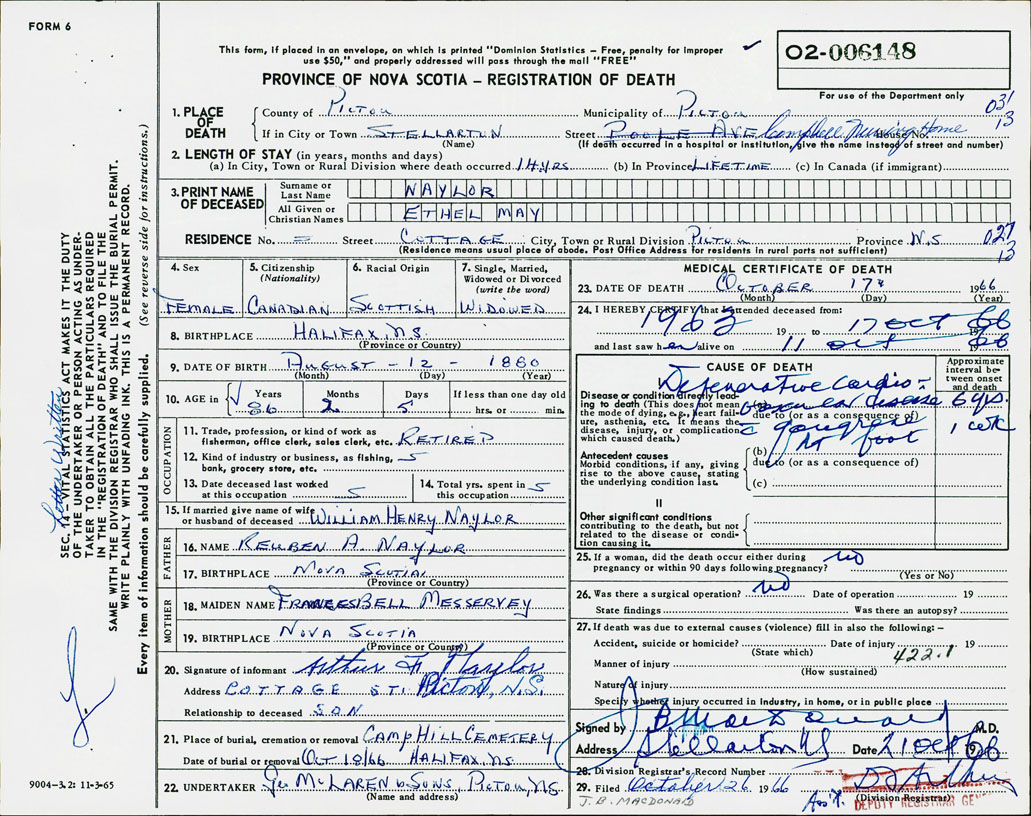 FORM 6
This form, if placed in an envelope, on which is printed "Dominion Statistics – Free, penalty for improper
use $50," and properly addressed will pass through the mail "FREE"
PROVINCE OF NOVA SCOTIA – REGISTRATION OF DEATH
02-006148
For use of the Department only
031
13
1. PLACE OF DEATH County of PICTOU Municipality of PICTOU
If in City or Town STELLARTON (Name) Street POOLE AVE Campbell Nursing Home House No.
(If death occurred in a hospital or institution, give the name instead of street and number)
2. LENGTH OF STAY (in years, months and days)
(a) In City, Town or Rural Division where death occurred 14 yrs (b) In Province LIFETIME (c) In Canada (if immigrant)
3. PRINT NAME OF DECEASED Surname or Last Name NAYLOR
All Given or Christian Names ETHEL MAY
RESIDENCE No. = Street COTTAGE City, Town or Rural Division PICTOU Province N.S
(Residence means usual place of abode. Post Office Address for residents in rural parts not sufficient)
027
13
4. Sex 5. Citizenship (Nationality) 6. Racial Origin 7. Single, Married, Widowed or Divorced (write the word)
FEMALE CANADIAN SCOTTISH WIDOWED
8. BIRTHPLACE HALIFAX, N.S.
(Province or Country)
9. DATE OF BIRTH AUGUST - 12 - 1880
(Month) (Day) (Year)
10. AGE in Years Months Days If less than one day old
86 2 5 hrs. or min.
OCCUPATION
11. Trade, profession, or kind of work as
fisherman, office clerk, sales clerk, etc. RETIRED
12. Kind of industry or business, as fishing,
bank, grocery store, etc.
13. Date deceased last worked
at this occupation
14. Total yrs. spent in
this occupation
15. If married give name of wife
or husband of deceased WILLIAM HENRY NAYLOR
FATHER
16. NAME REUBEN A. NAYLOR
17. BIRTHPLACE NOVA SCOTIA
(Province or Country)
MOTHER
18. MAIDEN NAME FRANCES BELL MESSERVEY
19. BIRTHPLACE NOVA SCOTIA
(Province or Country)
20. Signature of informant Arthur F Naylor
Address COTTAGE ST. Pictou, N.S.
Relationship to deceased SON
21. Place of burial, cremation or removal CAMP HILL CEMETERY
Date of burial or removal Oct 18/66 HALIFAX, N.S.
22. UNDERTAKER Geo McLAREN & SONS, PICTOU, N.S.
(Name and address)
MEDICAL CERTIFICATE OF DEATH
23. DATE OF DEATH OCTOBER 17th 1966
(Month) (Day) (Year)
24. I HEREBY CERTIFY that I attended deceased from:
1963 19 to 17 Oct 1966
and last saw her alive on 11 Oct 1966
CAUSE OF DEATH
Approximate interval between onset and death
I
Disease or condition directly leading to death (This does not mean the mode of dying, e.g., heart failure, asthenia, etc. It means the disease, injury, or complication which caused death.)
Degenerative Cardio-
vascular disease 6 yrs.
due to (or as a consequence of)
c gangrene 1 wk
Rt foot
Antecedent causes
Morbid conditions, if any, giving rise to the above cause, stating the underlying condition last.
(b)
due to (or as a consequence of)
(c)
II
Other significant conditions
contributing to the death, but not related to the disease or condition causing it.
25. If a woman, did the death occur either during
pregnancy or within 90 days following pregnancy? No
(Yes or No)
26. Was there a surgical operation? No Date of operation 19
State findings Was there an autopsy?
27. If death was due to external causes (violence) fill in also the following: –
Accident, suicide or homicide? Date of injury 19
(State which) 422.1
Manner of injury
(How sustained)
Nature of injury
Specify whether injury occurred in industry, in home, or in public place
Signed by J B MacDonald M.D.
Address Stellarton NS Date 21 Oct 1966
28. Division Registrar's Record Number
29. Filed October 26 1966
(Division Registrar)
DEPUTY REGISTRAR GEN
J. B. MACDONALD
Ass't.
9004–3.2: 11-3-65
Letter Written
SEC. 14 VITAL STATISTICS ACT MAKES IT THE DUTY
OF THE UNDERTAKER OR PERSON ACTING AS UNDER-
TAKER TO OBTAIN ALL THE PARTICULARS REQUIRED
IN THE "REGISTRATION OF DEATH" AND TO FILE THE
SAME WITH THE DIVISION REGISTRAR WHO SHALL ISSUE THE BURIAL PERMIT.
WRITE PLAINLY WITH UNFADING INK. THIS IS A PERMANENT RECORD.
Every item of information should be carefully supplied. (See reverse side for instructions.)